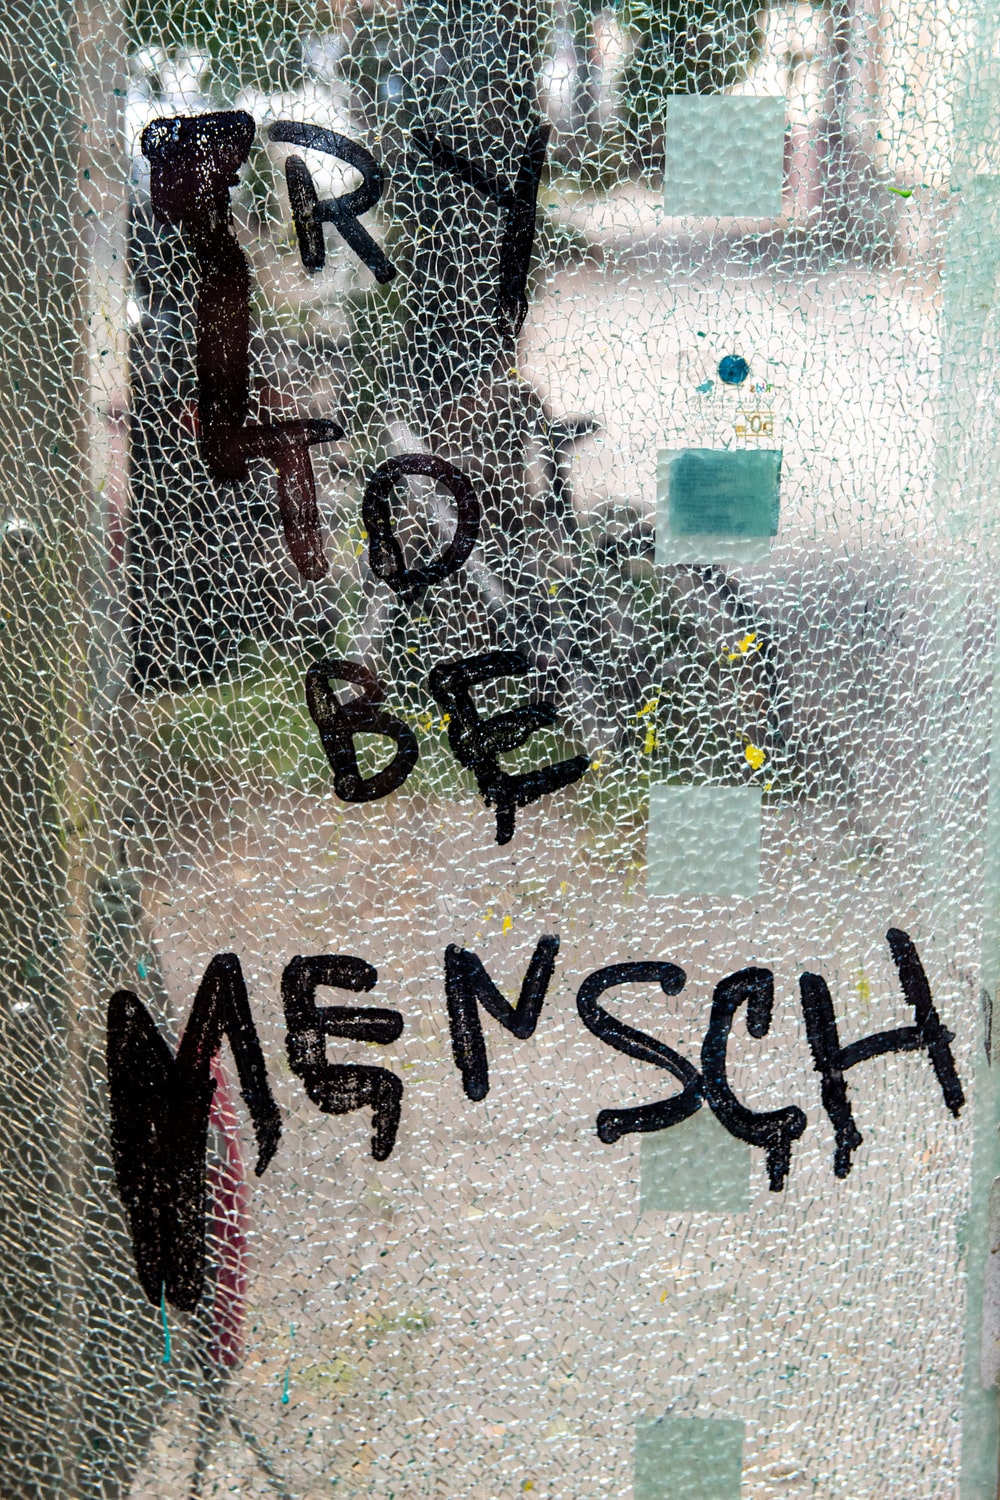 TRY
TO
BE
MENSCH